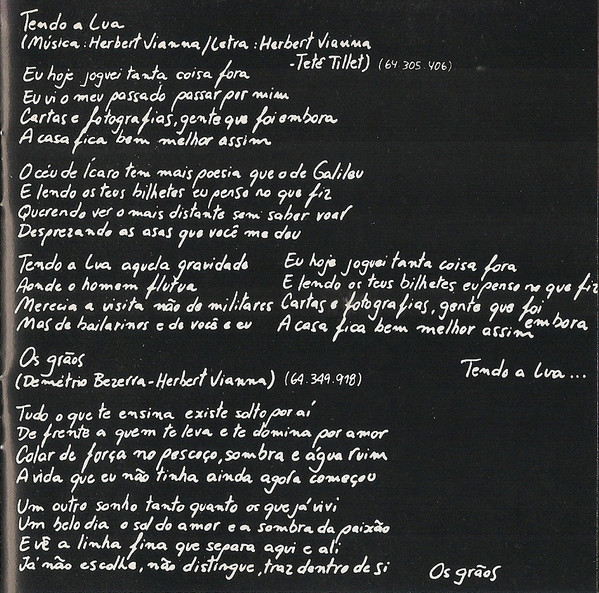 Tendo a Lua
(Música: Herbert Vianna/Letra: Herbert Vianna
-Tetê Tillet) (64 305.406)
Eu hoje joguei tanta coisa fora
Eu vi o meu passado passar por mim
Cartas e fotografias, gente que foi embora
A casa fica bem melhor assim
O céu de Ícaro tem mais poesia que o de Galileu
E lendo os teus bilhetes eu penso no que fiz
Querendo ver o mais distante sem saber voar
Desprezando as asas que você me deu
Tendo a Lua aquela gravidade
Aonde o homem flutua
Merecia a visita não de militares
Mas de bailarinos e de você e eu
Eu hoje joguei tanta coisa fora
E lendo os teus bilhetes eu penso no que fiz
Cartas e fotografias, gente que foi
embora
A casa fica bem melhor assim
Tendo a Lua...
Os grãos
(Demétrio Bezerra-Herbert Vianna) (64.349.918)
Tudo o que te ensina existe solto por aí
De frente a quem te leva e te domina por amor
Colar de força no pescoço, sombra e água ruim
A vida que eu não tinha ainda agora começou
Um outro sonho tanto quanto os que já vivi
Um belo dia o sol do amor e a sombra da paixão
E vê a linha fina que separa aqui e ali
Já não escolhe, não distingue, traz dentro de si
Os grãos